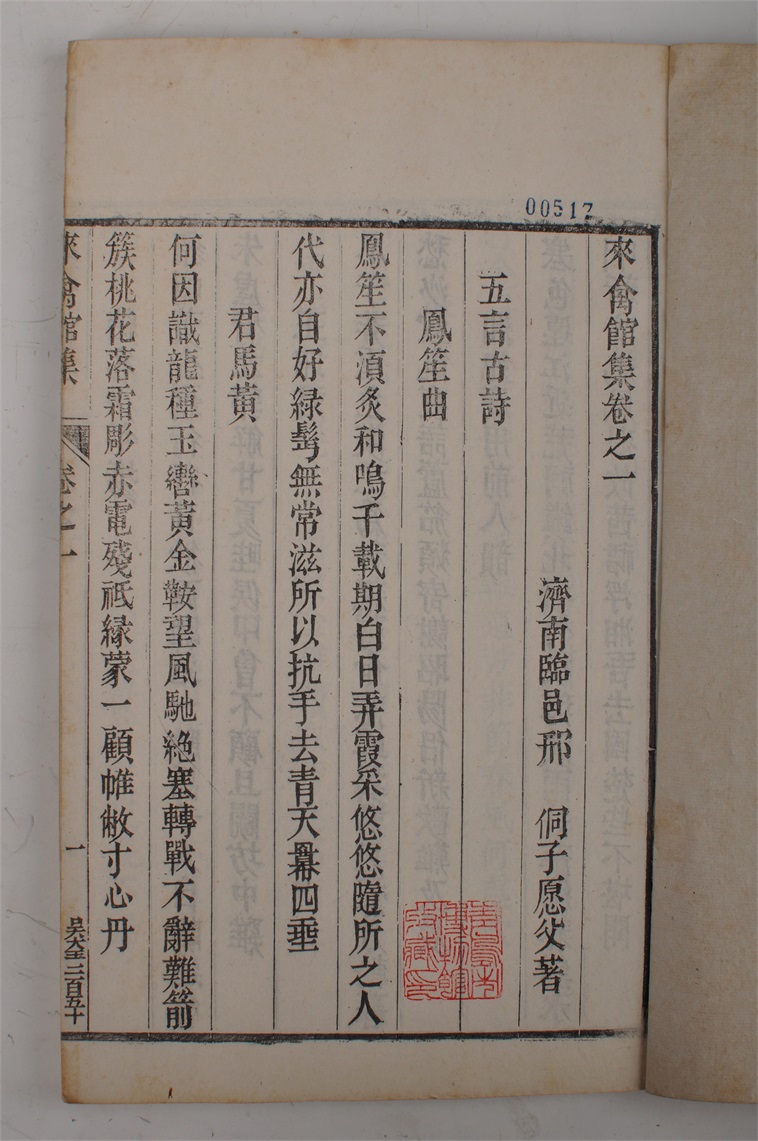 00517
來禽館集卷之一
濟南臨邑邢 侗子愿父著
五言古詩
鳳笙曲
鳳笙不須炙和鳴千載期白日弄霞采悠悠隨所之人
代亦自好綠髩無常滋所以抗手去青天羃四垂
君馬黃
何因識龍種玉轡黃金鞍望風馳絶塞轉戰不辭難箭
簇桃花落霜彫赤電殘祗緣蒙一顧帷敝寸心丹
來禽館集 卷之一 一